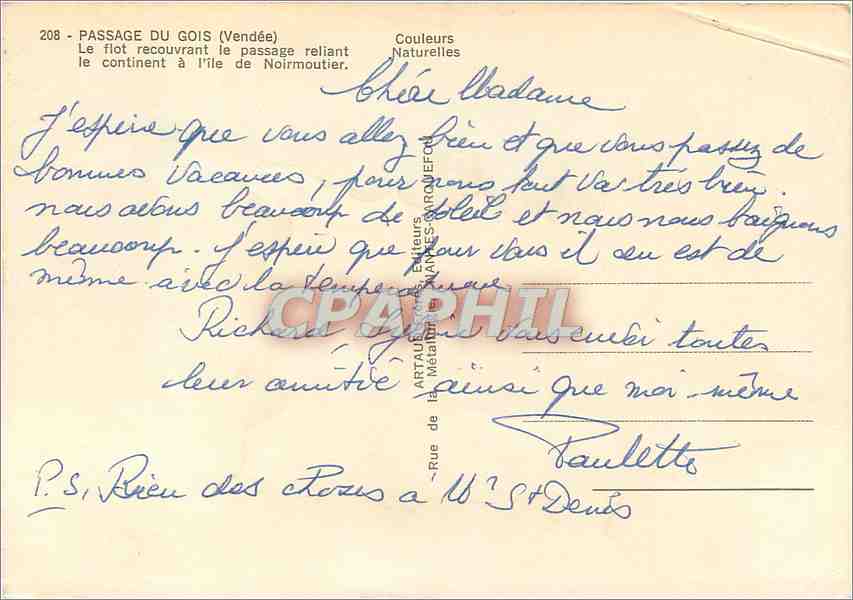 208 - PASSAGE DU GOIS (Vendée)
Le flot recouvrant le passage reliant
le continent à l'île de Noirmoutier.
Couleurs
Naturelles
Chére Madame
J'espère que vous allez bien et que vous passez de
bonnes vacances, pour nous tout va très bien.
nous avons beaucoup de soleil et nous nous baignons
beaucoup. J'espère que pour vous il en est de
même avec la température
Richard, Sylvie vous envoi toutes
leur amitié ainsi que moi-même
Paulette
P.S. Bien des choses à Mr St Denis
ARTAUD Frères, Editeurs
Rue de la Métallurgie, NANTES-CARQUEFOU
CPAPHIL